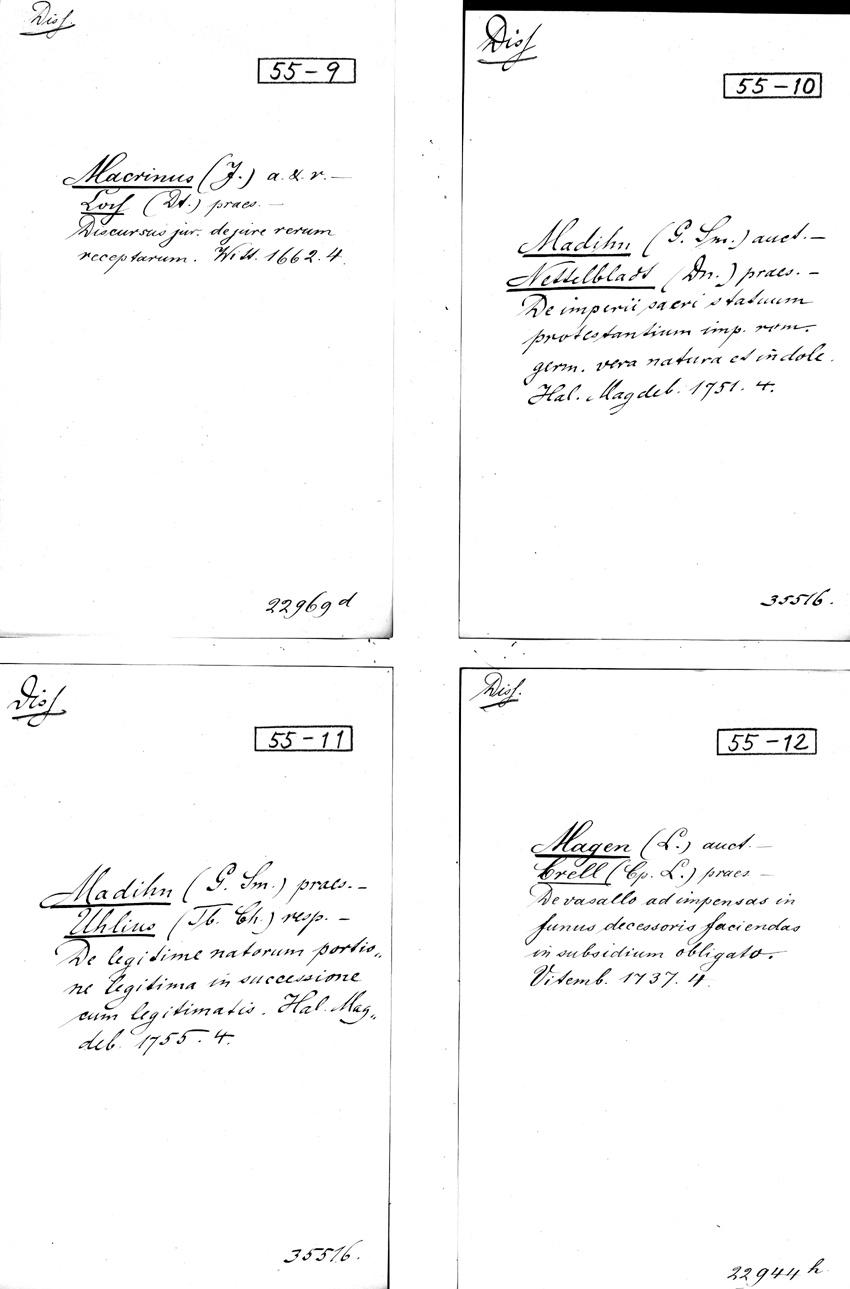 Diss.
55-9
Macrinus (J.) a. & r. —
Loss (Dt.) praes. —
Discursus jur. de jure rerum
receptarum. Witt. 1662. 4.
22969 d
Diss
55-10
Madihn (G. Sm.) auct. —
Nettelbladt (Dn.) praes. —
De imperii sacri statuum
protestantium imp. rom.
germ. vera natura et indole.
Hal. Magdeb. 1751. 4.
35516.
Diss
55-11
Madihn (G. Sm.) praes. —
Uhlius (Tb. Ch.) resp. —
De legitime natorum portio„
ne legitima in successione
cum legitimatis. Hal. Mag„
deb. 1755. 4.
35516.
Diss.
55-12
Magen (L.) auct. —
Crell (Cp. L.) praes —
De vasallo ad impensas in
funus decessoris faciendas
in subsidium obligato.
Vitemb. 1737. 4.
22944 h.